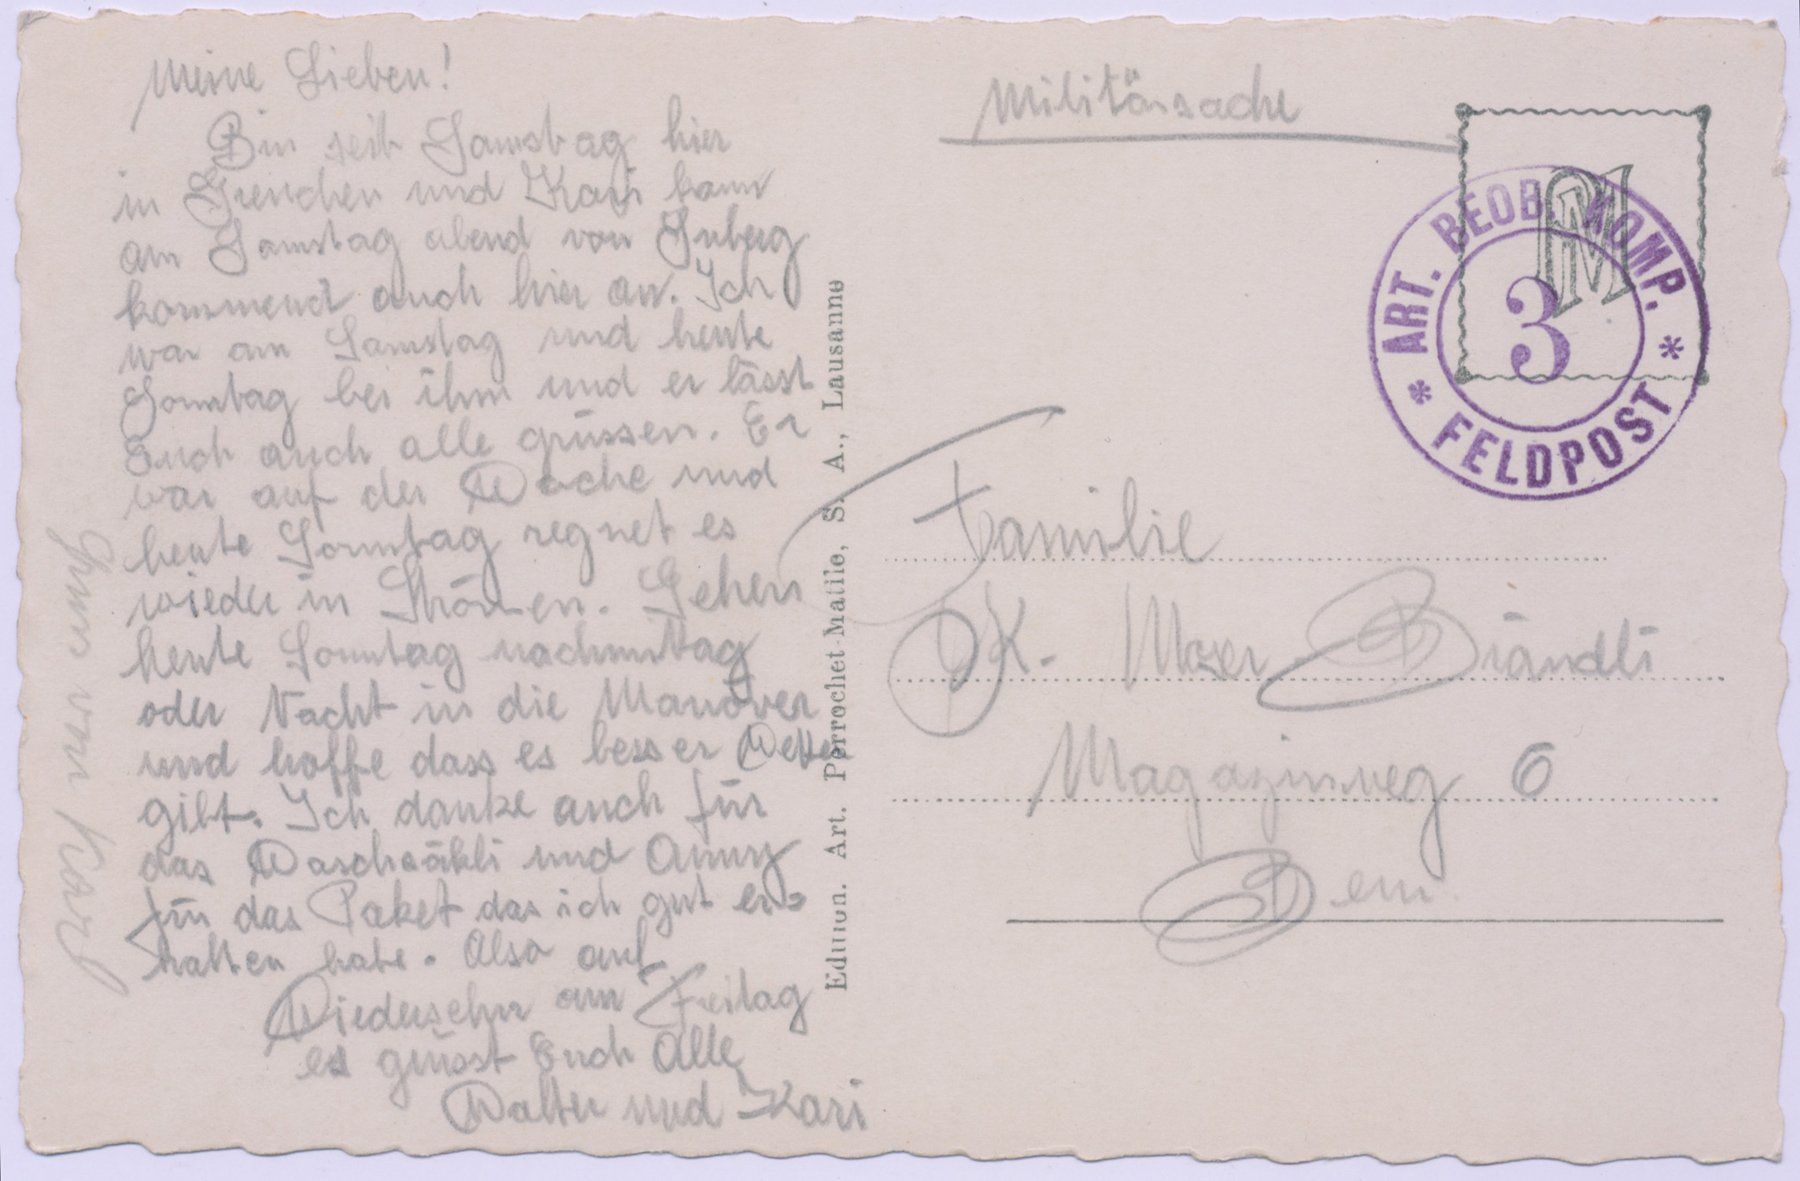 Meine Lieben!
Bin seit Samstag hier
in Grenchen und Kari kam
am Samstag abend von
kommend auch hier an. Ich
war am Samstag und heute
Sonntag bei ihm und er lässt
Euch auch alle grüssen. Er
war auf der Wache und
heute Sonntag regnet es
wieder in Strömen. Gehen
heute Sonntag nachmittag
oder Nacht in die Manöver
und hoffe dass es besser Wetter
gibt. Ich danke auch für
das Waschsäkli und Anny
für das Paket das ich gut er-
halten habe. Also auf
Wiedersehn am Freitag
es grüsst Euch Alle
Walter und Kari
Gruss von Karl
Edition. Art. Perrochet-Matile, S. A., Lausanne
Militärsache
ART. BEOB. KOMP.
3
* FELDPOST *
PM
Familie
K. Moser-Brändli
Magazinweg 6
Bern.